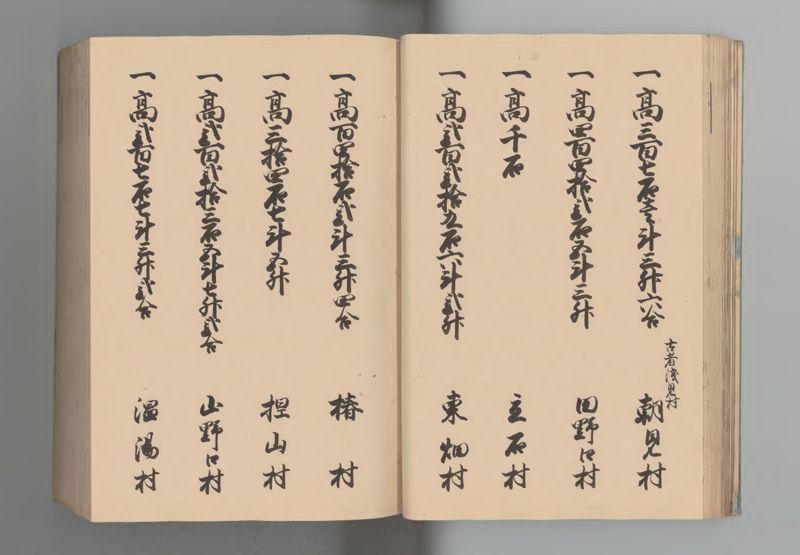 一高三百七石壱斗三升六合 朝見村
古者浅見村
一高四百四拾弐石五斗三升 田野口村
一高千石 立石村
一高弐百弐拾九石六斗弐升 東畑村
一高百四拾石弐斗三升四合 椿村
一高三拾四石七斗五升 捏山村
一高弐百弐拾三石五斗七升弐合 山野口村
一高弐百七石七斗三升弐合 温湯村